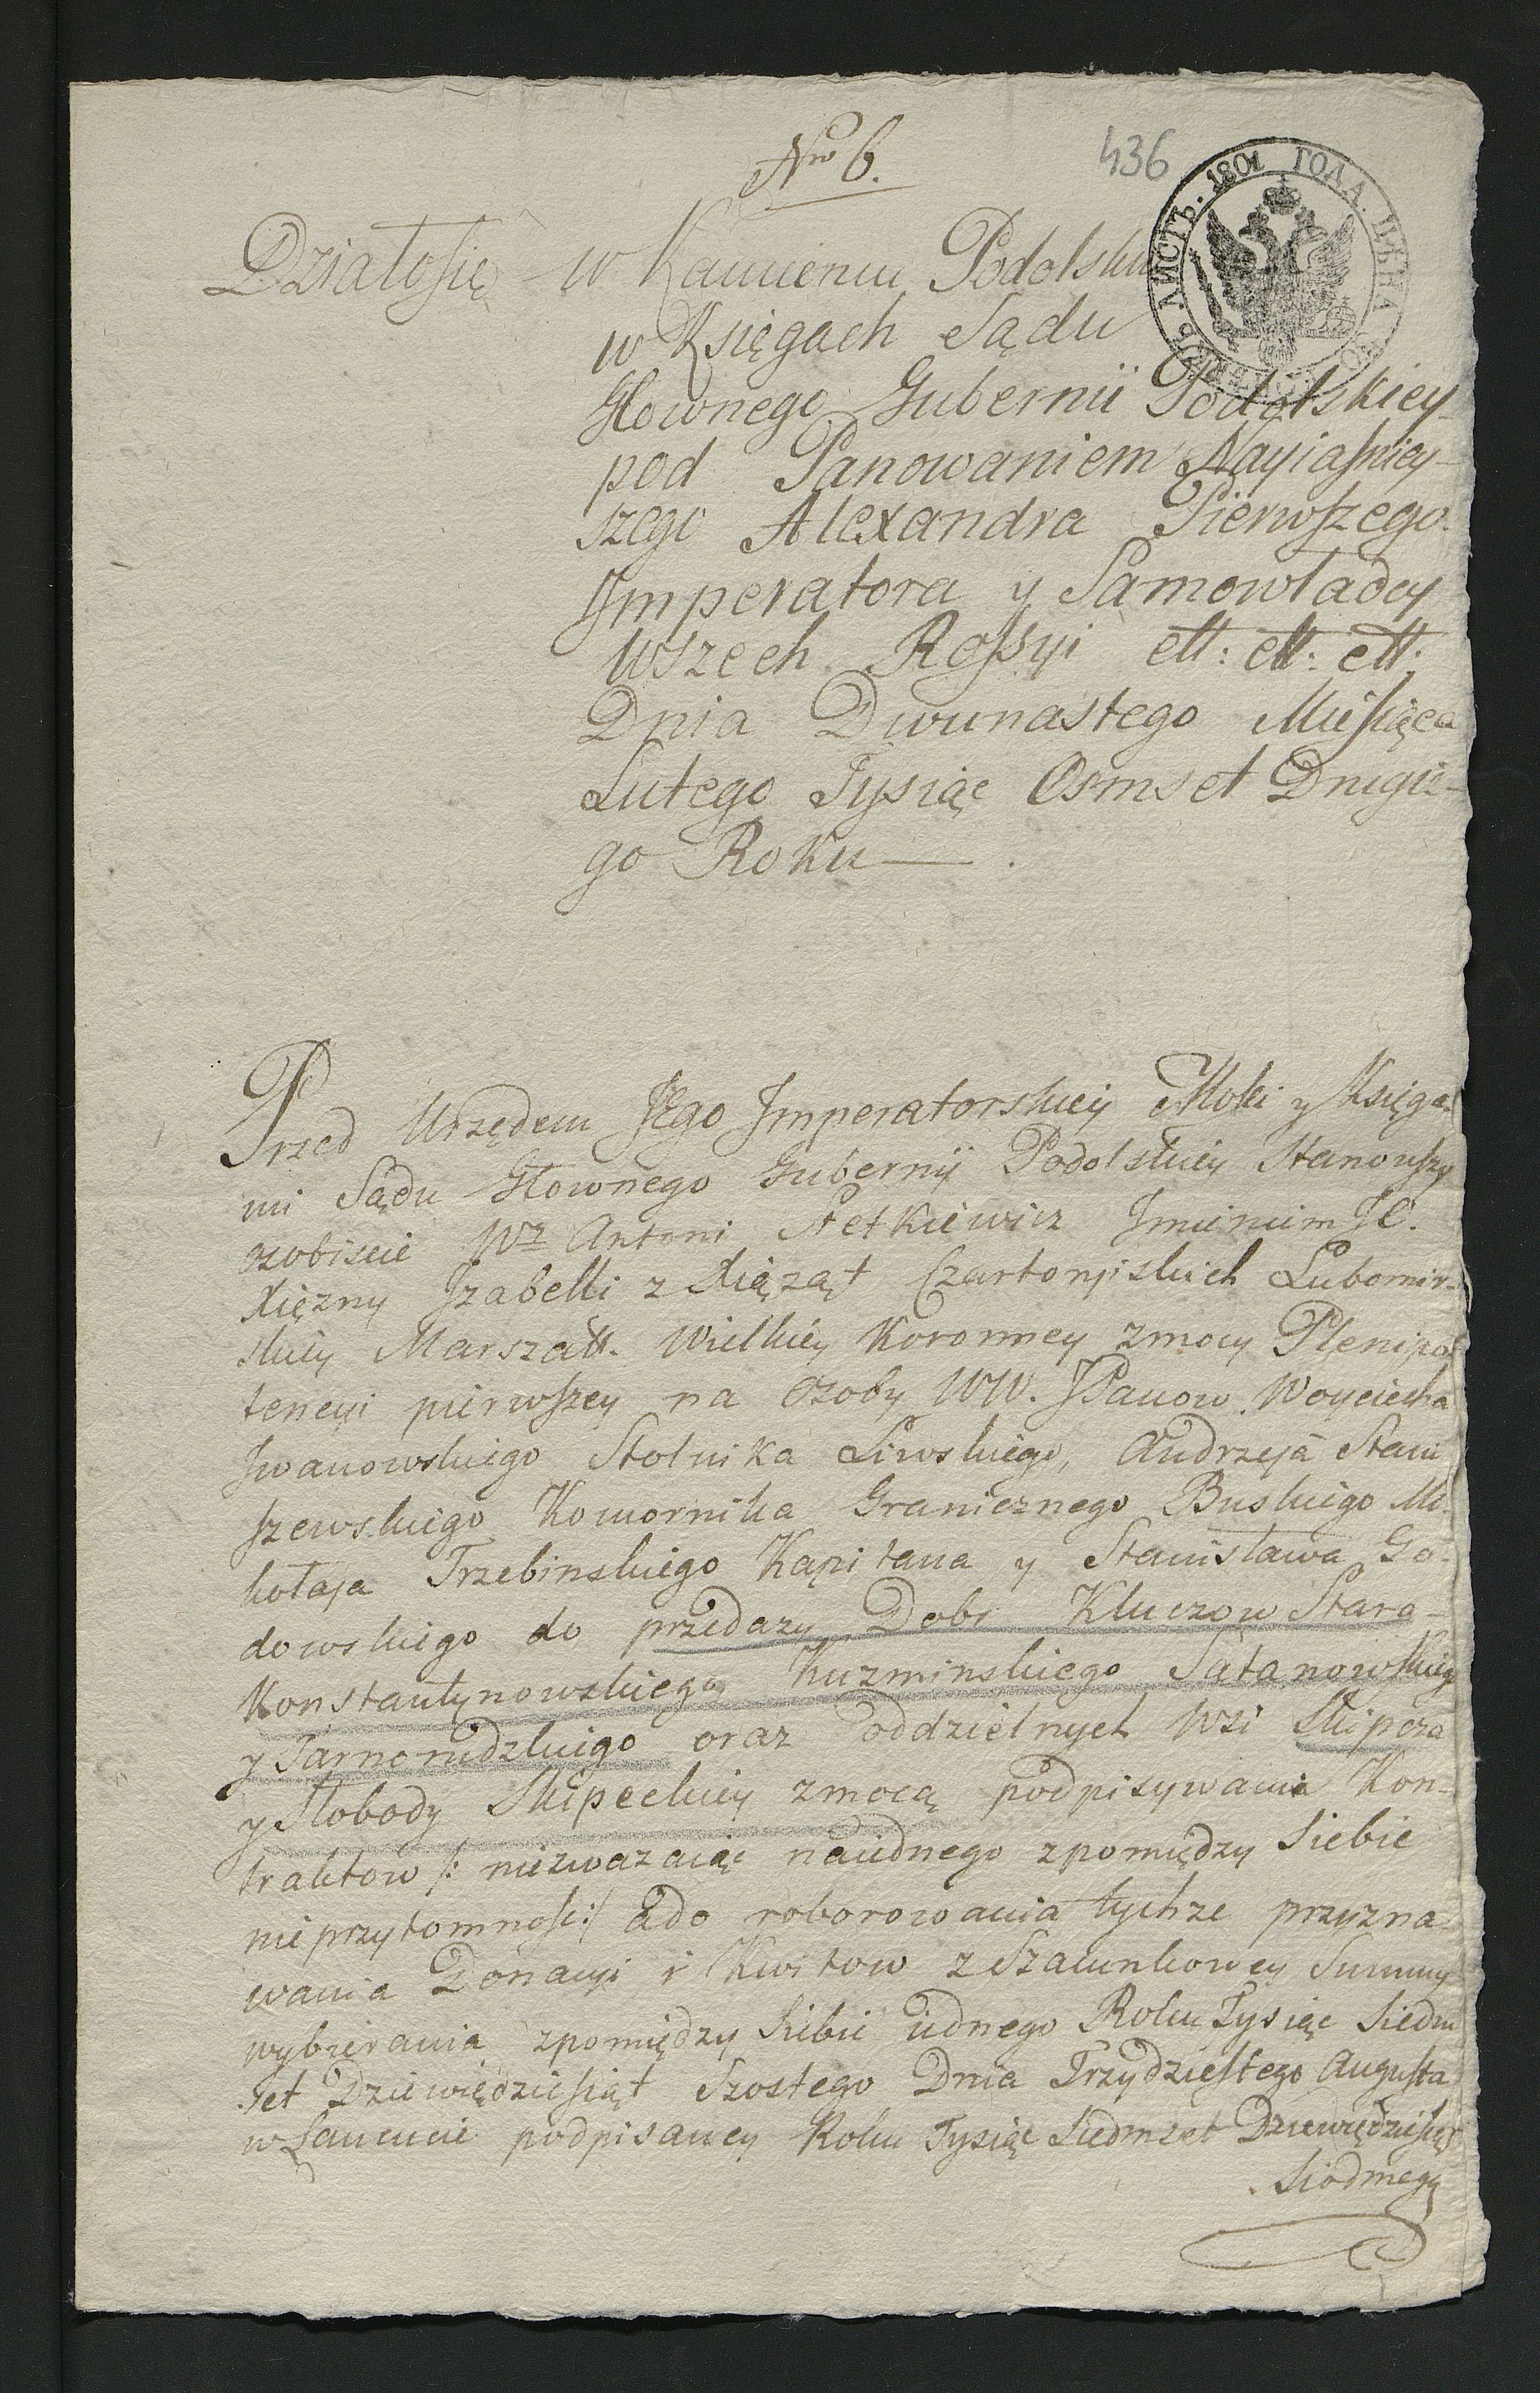 Nro 6.
436
ЛИСТЪ. 1801 ГОДА. ЦѢНА
Działosię w Kamieńcu Podolsku
w Księgach Sądu
Głownego Gubernii Podolskiey
pod Panowaniem Nayiasniey-
szego Alexandra Pierwszego
Imperatora y Samowładcy
wszech Rossyi ett: ett: ett:
Dnia Dwunastego Miesiąca
Lutego Tysiąc Osmset Drugie-
go Roku
Przed Urzędem Jego Imperatorskiey Mości y Księga-
mi Sądu Głownego Gubernij Podolskiey Stanowszy
ozobiscie Wz Antoni Stetkiewicz Imieniem JO.
Xiężny Izabelli z Xiążąt Czartoryiskich Lubomir-
skiey Marszałk. Wielkiey Koronney zmocy Plenipo-
tencyi pierwszey na Ozoby WW. JPanow Woyciecha
Iwanowskiego Stolnika Liwskiego, Andrzeja Stani
szewskiego Komornika Granicznego Buskiego Mi-
kołaja Trzebinskiego Kapitana y Stanisława Go-
dowskiego do przedazy Dobr Kluczow Staro-
Konstantynowskiego Kuzminskiego Satanowskiego
y Tarnorudzkiego oraz oddzielnych Wsi Skipcza
y Słobody Skipeckiey zmocą podpisywania Kon-
traktow /: niezwazaiąc naiednego zpomiędzy siebie
nieprzytomnosc :/ ado roborowania tychze przyzna-
wania Donacyi i Kwitow z Szacunkowey Summy
wybierania zpomiędzy siebie iednego Roku Tysiąc Siedm
set Dziewiędziesiąt Szostego Dnia Trzydziestego Augusta
w Łancucie podpisaney Roku Tysiąc Siedmset Dziewiędziesiąt
Siodmego